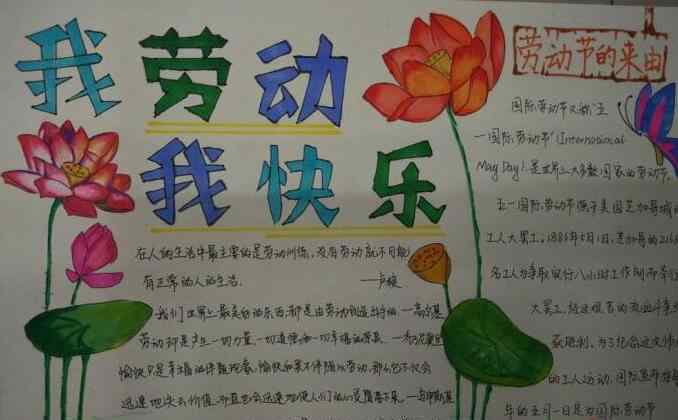 我劳动
我快乐
在人的生活中最主要的是劳动训练,没有劳动就不可能
有正常的人的生活。 ——卢梭
我们世界上最美好的东西都是由劳动创造出来的 —高尔基
劳动却是产生一切力量、一切道德和一切幸福的
愉快只是幸福的伴随现象,愉快如果不伴随以劳动,那么它不仅会
迅速地失去价值,而且也会迅速地使人们的心灵堕落下来。
劳动节的来由
国际劳动节又称"五
一国际劳动节"(International
May Day),是世界上大多数国家的劳动节。
五一国际劳动节源于美国芝加哥城的
工人大罢工。1886年5月1日,芝加哥的216
名工人为争取实行八小时工作制而举行
大罢工,经过艰苦的流血斗争
获胜利。为了纪念这次伟
的工人运动,国际
年的五月一日定为国际劳动